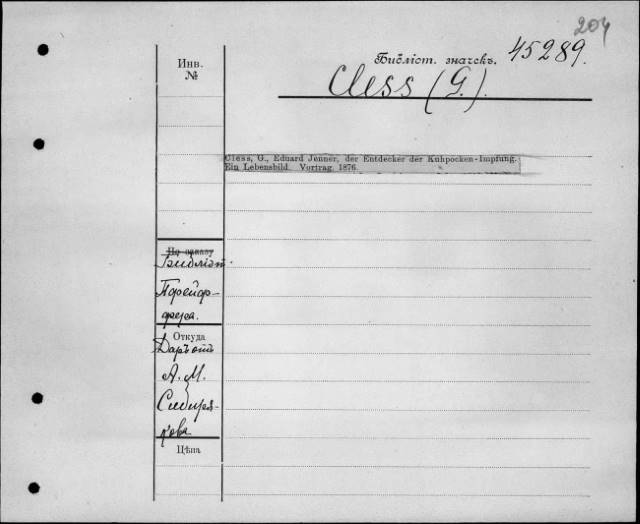 204
Инв.
№
Библіот. значекъ. 45289.
Cless (G.).
Cless, G., Eduard Jenner, der Entdecker der Kuhpocken-Impfung.
Ein Lebensbild. Vortrag. 1876.
По заказу
Библіот.
Пфейф-
фера.
Откуда
Даръ отъ
А. М.
Сибиря-
кова
Цѣна